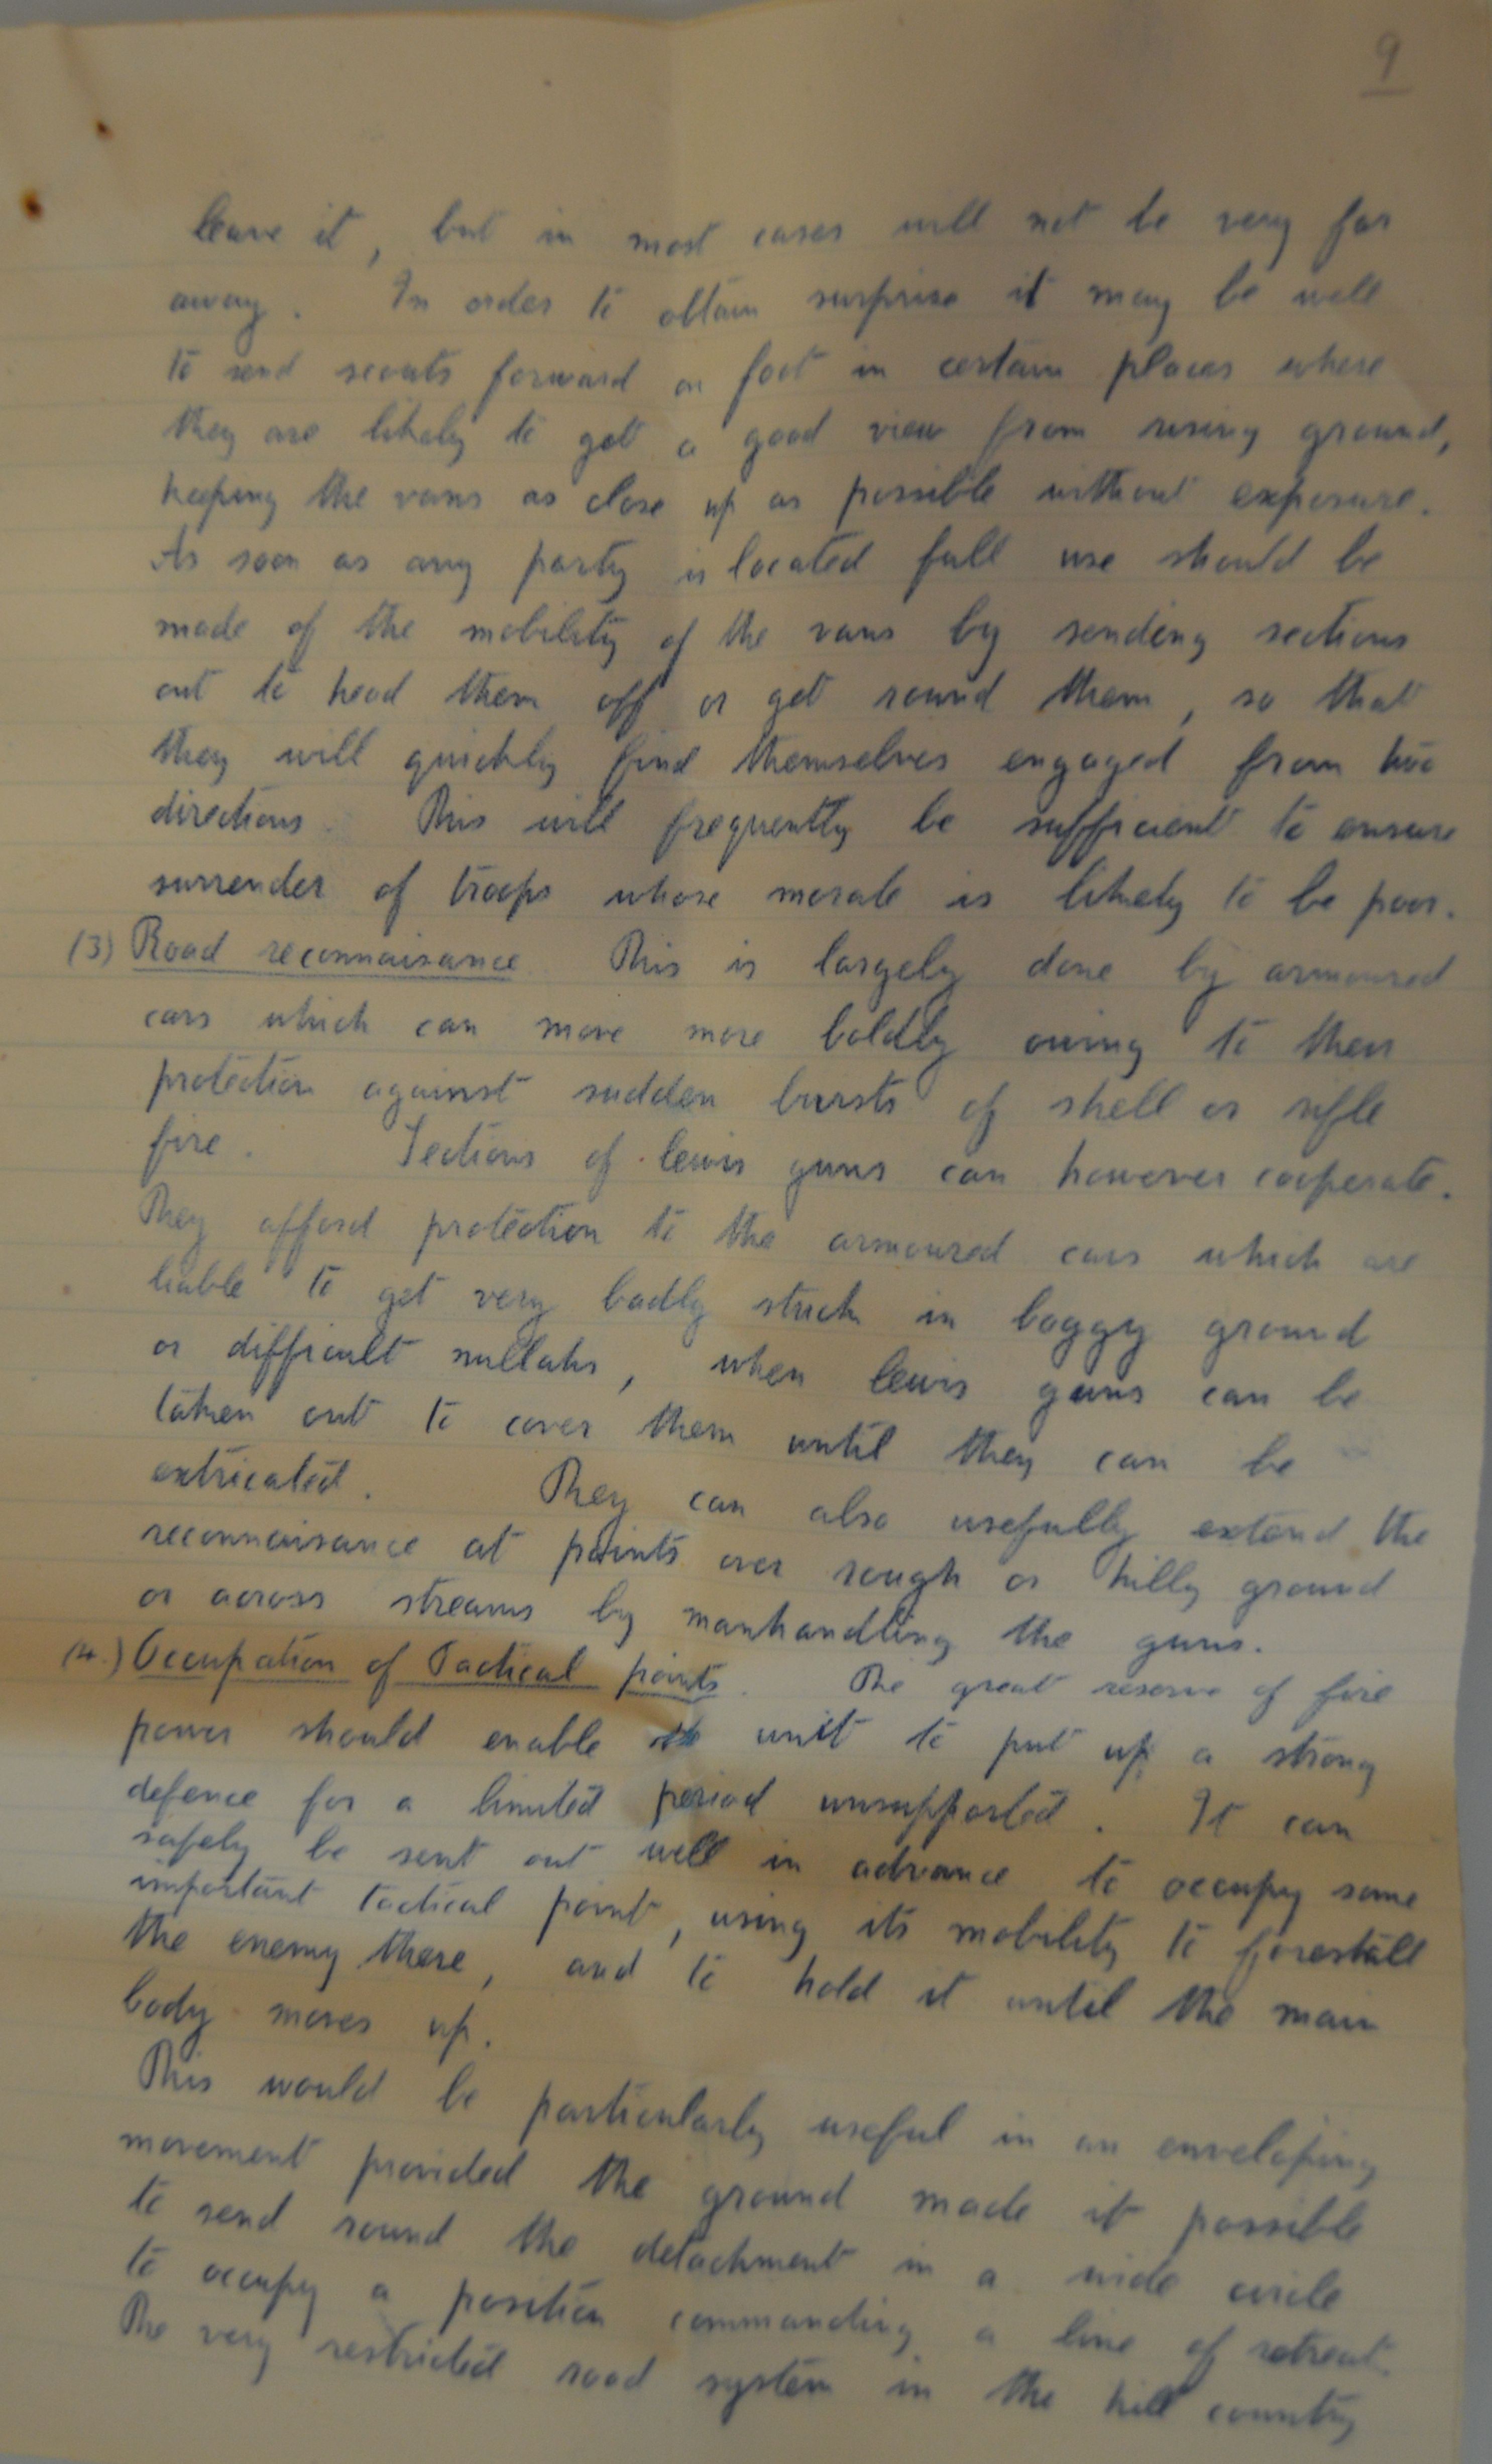 9
leave it, but in most cases will not be very far
away. In order to obtain surprise it may be well
to send scouts forward on foot in certain places where
they are likely to get a good view from rising ground,
keeping the vans as close up as possible without exposure.
As soon as any party is located full use should be
made of the mobility of the vans by sending sections
out to head them off or get round them, so that
they will quickly find themselves engaged from two
directions. This will frequently be sufficient to ensure
surrender of troops whose morale is likely to be poor.
(3) Road reconnaisance. This is largely done by armoured
cars which can move more boldly owing to their
protection against sudden bursts of shell or rifle
fire. Sections of lewis guns can however cooperate.
They afford protection to the armoured cars which are
liable to get very badly stuck in boggy ground
or difficult nullahs, when lewis guns can be
taken out to cover them until they can be
extricated. They can also usefully extend the
reconnaisance at points over rough or hilly ground
or across streams by manhandling the guns.
(4.) Occupation of Tactical points. The great reserve of fire
power should enable the unit to put up a strong
defence for a limited period unsupported. It can
safely be sent out well in advance to occupy some
important tactical point, using its mobility to forestall
the enemy there, and to hold it until the main
body moves up.
This would be particularly useful in an enveloping
movement provided the ground made it possible
to send round the detachment in a wide circle
to occupy a position commanding a line of retreat.
The very restricted road system in the hill country